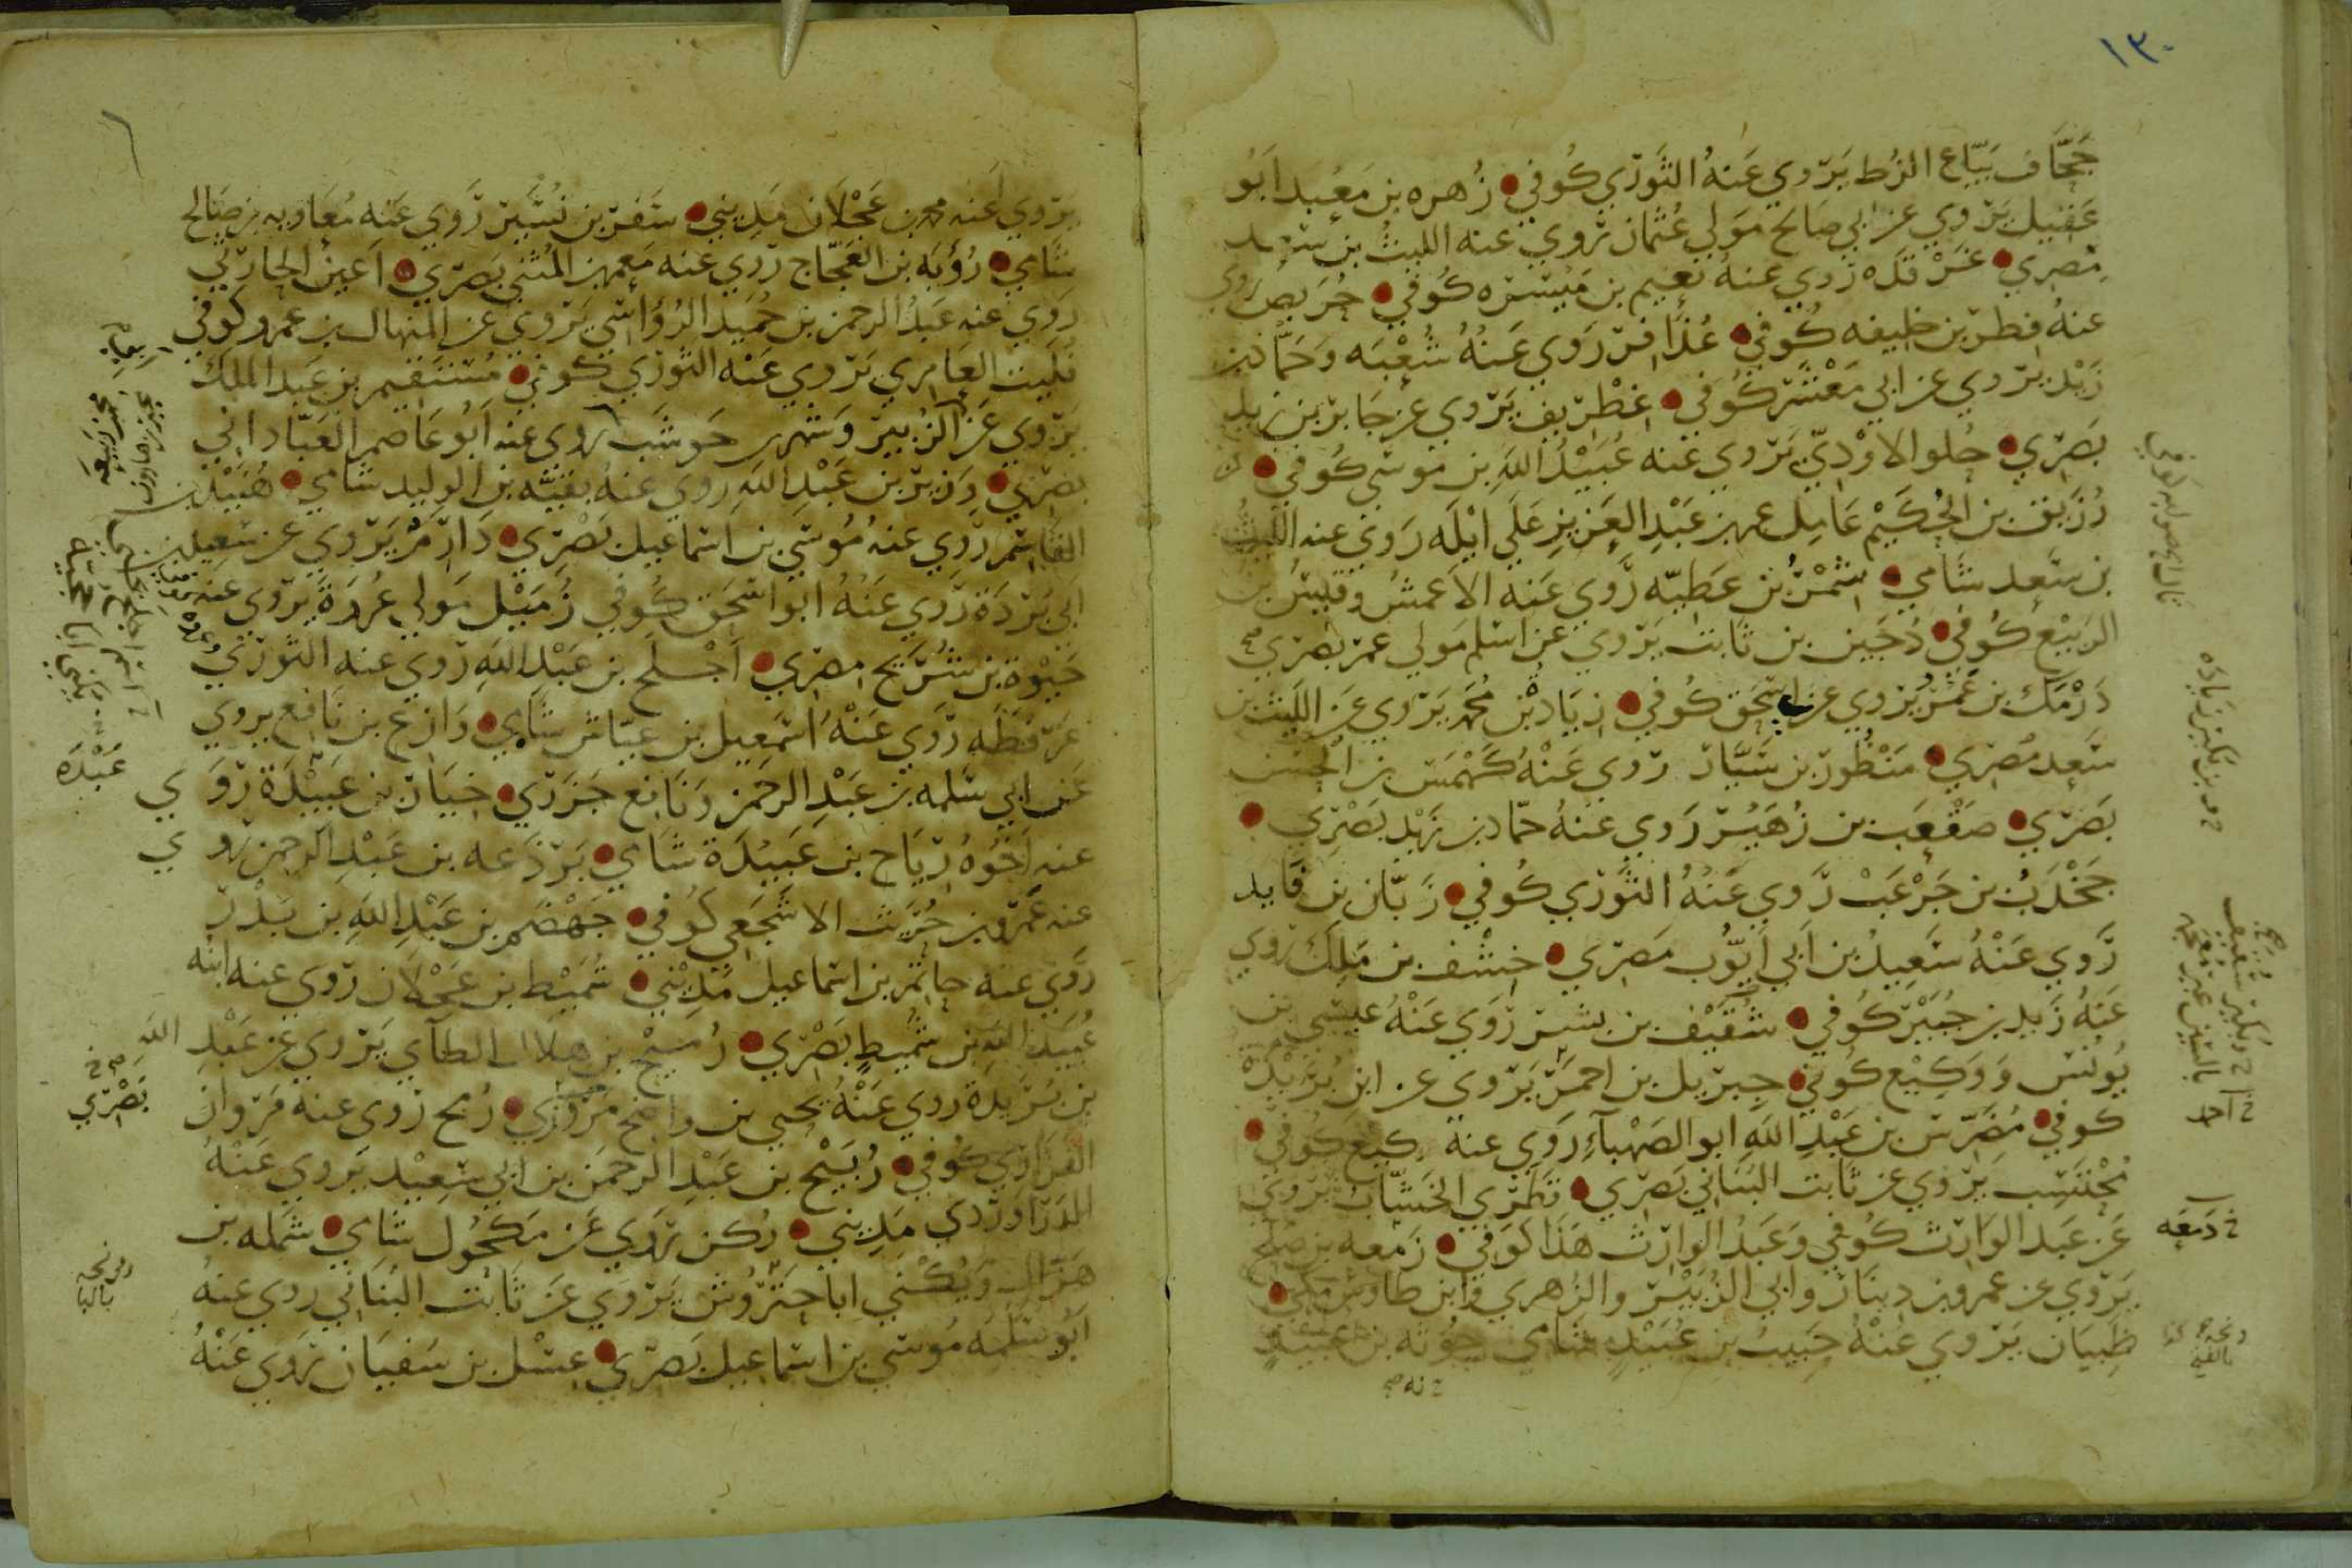 ١٣٠
جحاف بياع الزط يروي عنه الثوري كوفي زهره بن معبد ابو
عقيل يروي عن ابي صالح مولي عثمان روي عنه الليث بن سعد
مصري غرقده روي عنه نعيم بن ميسره كوفي روي
عنه فطر بن خليفه كوفي عذافر روي عنه شعبه وحماد بن
زيد يروي عن ابي معشر كوفي غطريف يروي عن جابر بن زيد
بصري حلو الاودي يروي عنه عبيد الله بن موسي كوفي
رزيق بن الحكيم عامل عمر بن عبد العزيز علي ايله روي عنه الليث
بن سعد شامي شمر بن عطيه روي عنه الاعمش وقيس بن
الربيع كوفي دجين بن ثابت يروي عن اسلم مولي عمر بصري
درمك بن عمرو يروي عن اسحق كوفي زياد بن محمد يروي عن الليث بن
سعد مصري منظور بن سيار روي عنه كهمس بن الحسن
بصري صقعب بن زهير روي عنه حماد بن زيد بصري
جخدب بن جرعب روي عنه الثوري كوفي زبان بن فايد
روي عنه سعيد بن ابي ايوب مصري خشف بن ملك روي
عنه زيد بن جبير كوفي شقيف بن بشر روي عنه عيسي بن
يونس ووكيع كوفي جبريل بن احمر يروي عن ابن بريدة
كوفي مضرس بن عبد الله ابو الصهباء روي عنه وكيع كوفي
محتسب يروي عن ثابت البناني بصري قطري الخشاب يروي
عن عبد الوارث كوفي وعبد الوارث هذا كوفي زمعه بن صلح
يروي عن عمرو بن دينار وابي الزبير والزهري وابن طاوس مكي
ظبيان يروي عنه حبيب بن عبيد شامي جونه بن عبيد
خ دمعه
يروي عنه محمد بن عجلان مديني سفر بن نسير روي عنه معاويه بن صالح
شامي رؤبه بن العجاج روي عنه معمر بن المثني بصري اعين الحارثي
روي عنه عبد الرحمن بن حميد الرؤاسي يروي عن المنهال بن عمرو كوفي
فليت العامري يروي عنه الثوري كوفي مستقيم بن عبد الملك
يروي عن الزبير وشهر حوشب روي عنه ابو عاصم العباداني
بصري وزير بن عبد الله روي عنه بقيه بن الوليد شامي هنيد بن
القاسم روي عنه موسي بن اسماعيل بصري دارم يروي عن سعيد بن
ابي بردة روي عنه ابو اسحق كوفي زميل مولي عروة يروي عنه
حيوة بن شريح مصري اجلح بن عبد الله روي عنه الثوري
عن قرظه روي عنه اسمعيل بن عياش شامي وازع بن نافع يروي
عن ابي سلمه بن عبد الرحمن ونافع جزري خيار بن عبيدة روي
عنه اخوه رياح بن عبيدة شامي برذعه بن عبد الرحمن روي
عنه عمرو بن حريث الاشجعي كوفي جهضم بن عبد الله بن بدر
روي عنه حاتم بن اسماعيل مديني شميط بن عجلان روي عنه ابنه
عبيد الله بن شميط بصري رميح بن هلال الطآي يروي عن عبد الله
بن بريدة روي عنه يحيي بن واضح مروزي رمح روي عنه مروان
الفزاري كوفي ربيح بن عبد الرحمن بن ابي سعيد يروي عنه
الدراوردي مديني ركن روي عن مكحول شامي شمله بن
هزال ويكني ابا حتروش يروي عن ثابت البناني روي عنه
ابو سلمه موسي بن اسماعيل بصري عسل بن سفيان روي عنه
عبدة
بصري